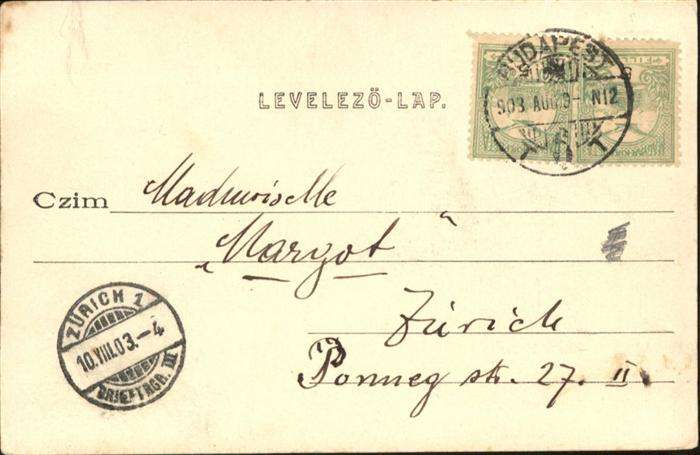 BUDAPEST
903 AUG. 9 - N12
LEVELEZŐ-LAP.
Czim Mademoiselle
„Margot"
Zürich
Sonnegg str. 27. II
ZÜRICH 1
10.VIII.03.-4
BRIEFTRGR. III